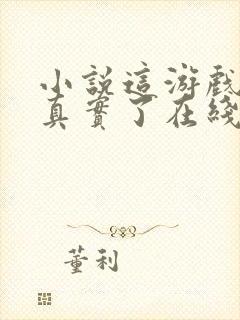 小說這游戲
真實了在綫
董利